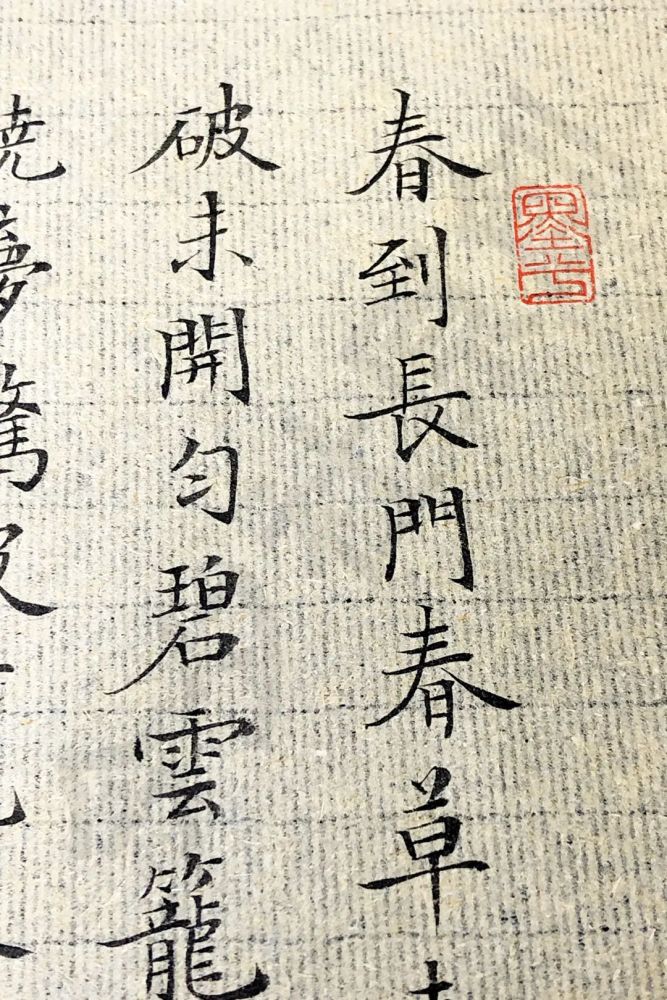 春到長門春草
破未開勻碧雲籠
曉夢驚破